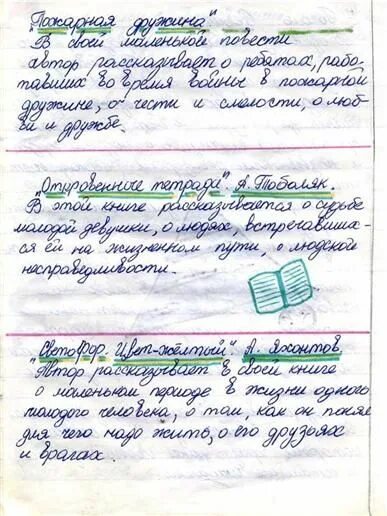 "Пожарная дружина"
В своей маленькой повести
автор рассказывает о ребятах, рабо-
тавших во время войны в пожарной
дружине, о чести и смелости, о люб-
ви и дружбе.
"Откровенные тетради". А. Тоболяк.
В этой книге рассказывается о судьбе
молодой девушки, о людях, встречавших-
ся ей на жизненном пути, о людской
несправедливости.
"Светофор. Цвет-жёлтый". А. Яхонтов.
Автор рассказывает в своей книге
о маленьком периоде в жизни одного
молодого человека, о том, как он понял
для чего надо жить, о его друзьях
и врагах.